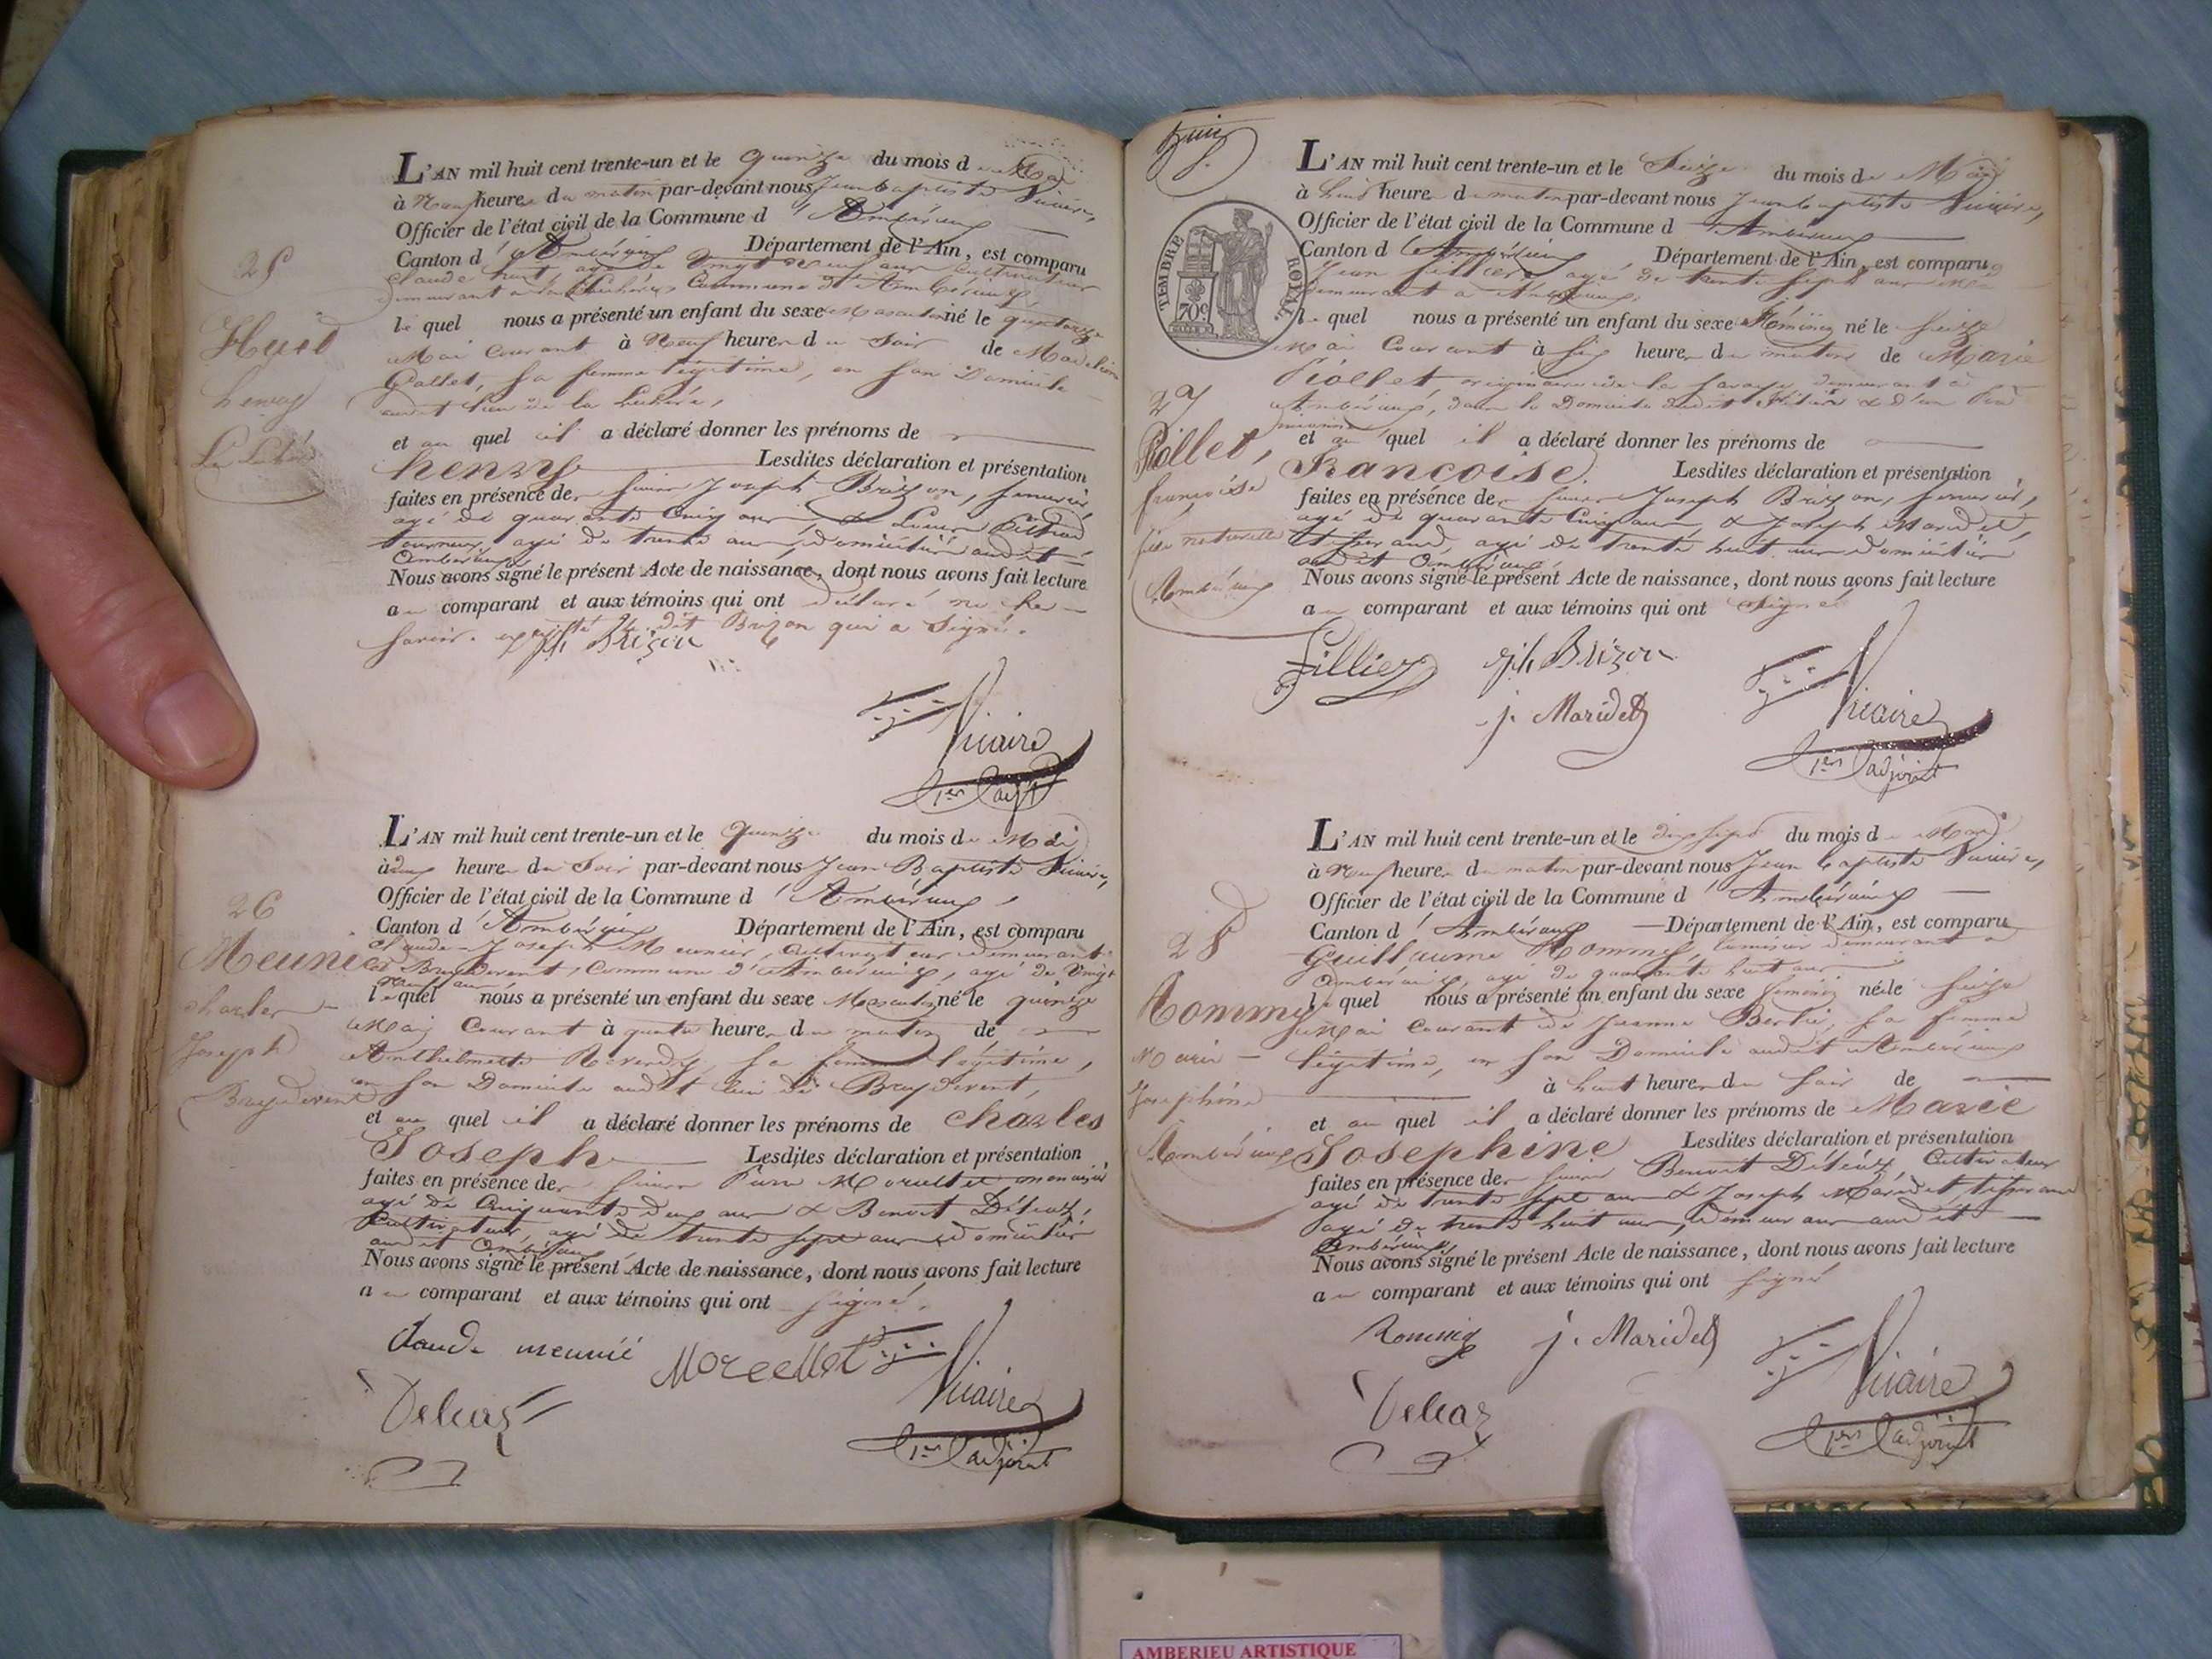 L'AN mil huit cent trente-un et le quinze du mois de Mai
à Neuf heure du matin par-devant nous Jean baptiste Vicaire,
Officier de l'état civil de la Commune d'Ambérieux
Canton d'Ambérieux Département de l'Ain, est comparu
Claude huit, agé de vingt neuf ans Cultivateur
demeurant a Commune d'Ambérieux,
25
Huit
henry
le quel nous a présenté un enfant du sexe Masculin né le quatorze
Mai Courant à Neuf heure du soir de
Gallet, sa femme légitime, en son Domicile
audit lieu de la
et au quel il a déclaré donner les prénoms de
henry Lesdites déclaration et présentation
faites en présence de Joseph Brizon,
agé de quarante Cinq ans, &
tourneur, agé de trente ans, domiciliés audit
Ambérieux
Nous avons signé le présent Acte de naissance, dont nous avons fait lecture
au comparant et aux témoins qui ont déclaré ne
savoir. excepté le dit Brizon qui a signé.
jh Brizon
Vicaire
1er adjt
L'AN mil huit cent trente-un et le quinze du mois de Mai
à deux heure du soir par-devant nous Jean Baptiste Vicaire,
Officier de l'état civil de la Commune d'Ambérieux,
Canton d'Ambérieux Département de l'Ain, est comparu
26
Meunier
charles
Joseph
Breydevent
Claude-Joseph Meunier, Cultivateur demeurant
a Breydevent, Commune d'Ambérieux, agé de vingt
neuf ans
le quel nous a présenté un enfant du sexe Masculin né le quinze
Mai Courant à quatre heure du matin de
Anthelmette sa femme légitime,
en son Domicile audit lieu de Breydevent,
et au quel il a déclaré donner les prénoms de charles
Joseph Lesdites déclaration et présentation
faites en présence de
agé de Cinquante deux ans & Benoit
Cultivateur, agé de trente sept ans domiciliés
audit Ambérieux
Nous avons signé le présent Acte de naissance, dont nous avons fait lecture
au comparant et aux témoins qui ont signé.
Claude meunié
Vicaire
1er adjoint
TIMBRE ROYAL
70c
L'AN mil huit cent trente-un et le Seize du mois de Mai
à huit heure du matin par-devant nous Jean baptiste Vicaire,
Officier de l'état civil de la Commune d'Ambérieux
Canton d'Ambérieux Département de l'Ain, est comparu
Jean agé de trente sept ans
demeurant a Ambérieux,
le quel nous a présenté un enfant du sexe féminin né le seize
Mai Courant à six heure du matin de Marie
27
Piollet,
françoise
fille naturelle
Ambérieux
Piollet originaire de la Savoye, demeurant à
Ambérieux, dans le Domicile dudit
et au quel il a déclaré donner les prénoms de
Françoise. Lesdites déclaration et présentation
faites en présence de Joseph Brizon,
agé de quarante Cinq ans, & Joseph Maridet,
tisserand, agé de trente huit ans domiciliés
audit Ambérieux
Nous avons signé le présent Acte de naissance, dont nous avons fait lecture
au comparant et aux témoins qui ont signé
jh Brizon
j. Maridet
Vicaire
1er adjoint
L'AN mil huit cent trente-un et le dix sept du mois de Mai
à Neuf heure du matin par-devant nous Jean baptiste Vicaire,
Officier de l'état civil de la Commune d'Ambérieux
Canton d'Ambérieux Département de l'Ain, est comparu
28
Rommy
Marie
Joséphine
Ambérieux
Guillaume Rommy, demeurant a
Ambérieux, agé de quarante huit ans
le quel nous a présenté un enfant du sexe féminin né le seize
Mai courant de Jeanne sa femme
légitime, en son Domicile audit Ambérieux
à huit heure du soir de
et au quel il a déclaré donner les prénoms de Marie
Josephine Lesdites déclaration et présentation
faites en présence de Benoit Cultivateur
agé de trente sept ans & Joseph Maridet, tisserand
agé de trente huit ans, demeurans audit
Ambérieux
Nous avons signé le présent Acte de naissance, dont nous avons fait lecture
au comparant et aux témoins qui ont signé
j. Maridet
Vicaire
1er adjoint
AMBERIEU ARTISTIQUE